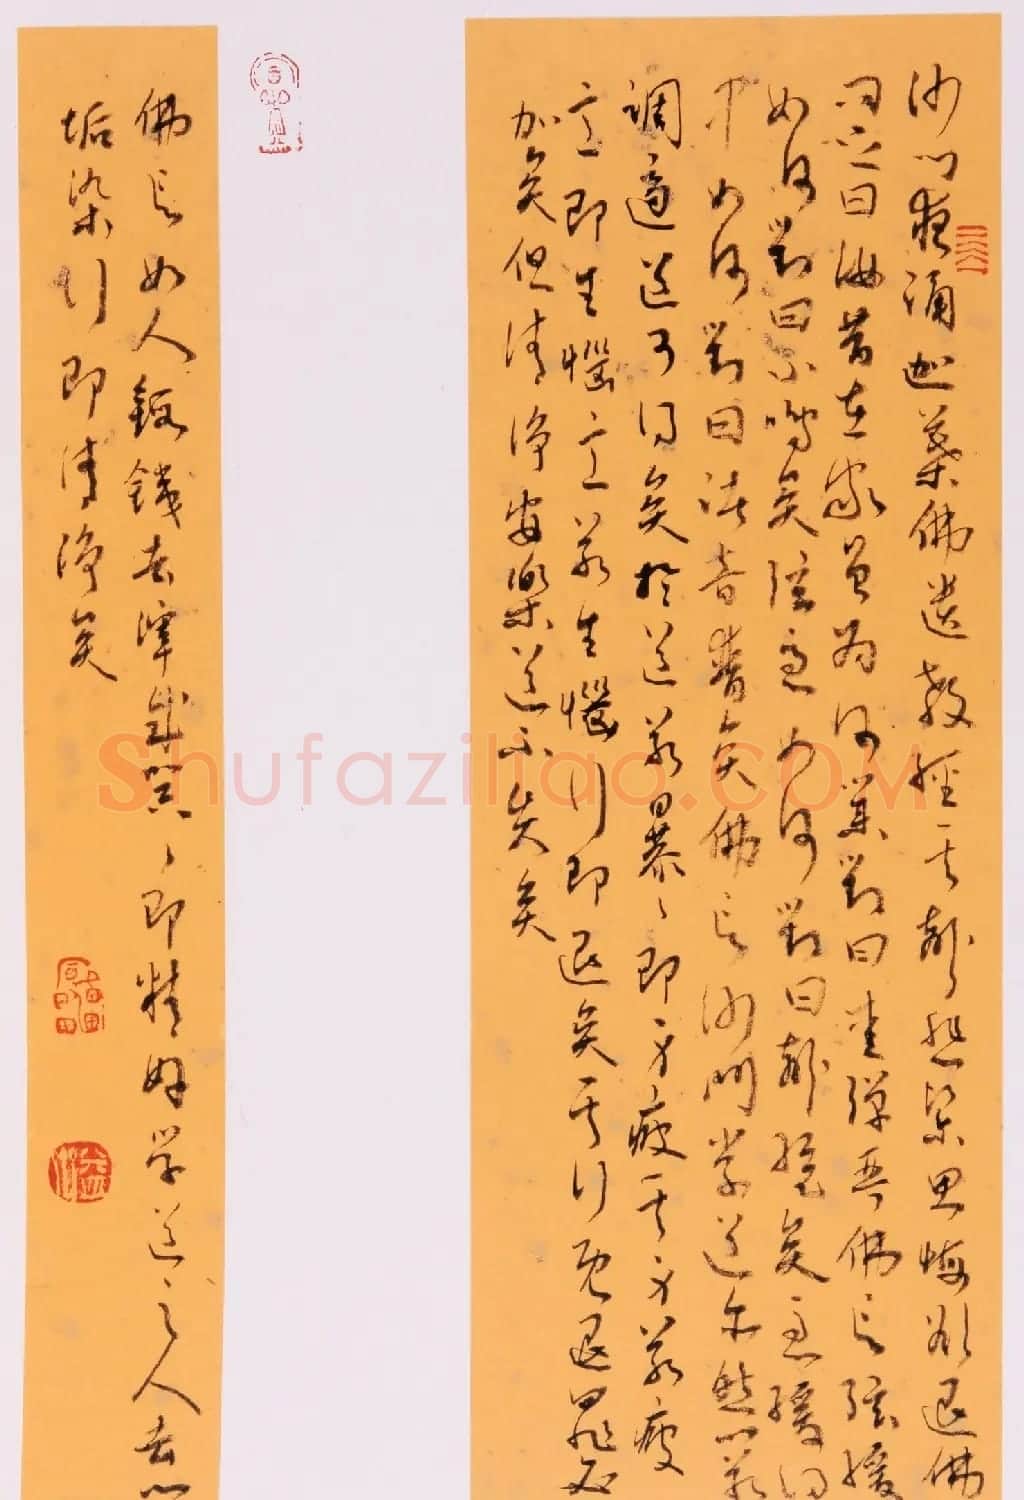 沙门夜诵迦叶佛遗教经其声悲紧思悔欲退佛
问之曰汝昔在家曾为何业对曰爱弹琴佛言弦缓
如何对曰不鸣矣弦急如何对曰声绝矣急缓得
中如何对曰诸音普矣佛言沙门学道亦然心若
调适道可得矣于道若暴暴即身疲其身若疲
意即生恼意若生恼行即退矣其行既退罪必
加矣但清净安乐道不失矣
佛言如人锻铁去滓成器器即精好学道之人去心
垢染行即清净矣
Shufaziliao.COM